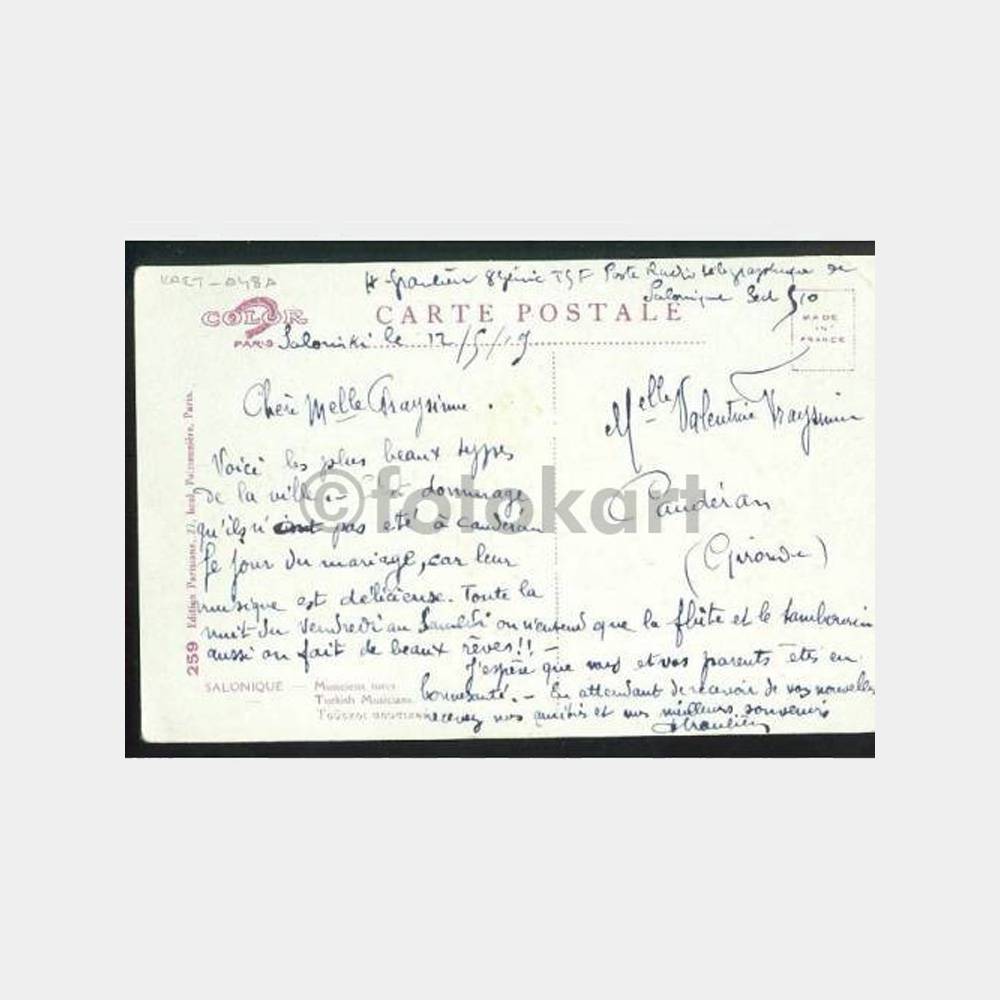 VAET-048A
8 Génie TSF Poste Radio télégraphique de
Salonique Sect 510
COLOR
PARIS
CARTE POSTALE
MADE
IN
FRANCE
Saloniki le 12/5/19
Chère Melle Fraysinne.
Melle Valentine Fraysinne
Caudéran
(Gironde)
Voici les plus beaux types
de la ville - dommage
qu'ils n'ont pas été à Caudéran
le jour du mariage, car leur
musique est délicieuse. Toute la
nuit du vendredi au Samedi on n'entend que la flûte et le tambourin
aussi on fait de beaux rêves!! -
J'espère que vous et vos parents êtes en
bonne santé. - En attendant de recevoir de vos nouvelles
recevez nos amitiés et nos meilleurs souvenirs
259 Edition Parisiana, 27, boul. Poissonnière, Paris.
SALONIQUE — Musiciens turcs
Turkish Musicians
©fotokart